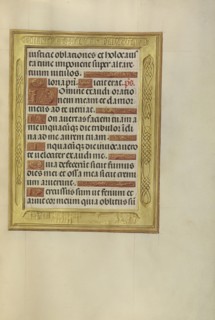 iusticie oblationes et holocaus
ta tunc imponent super altare
tuum vitulos.
loria pri. icut erat. ps.
Omine exaudi oratio
nem meam et clamor
meus ad te veniat.
on avertas faciem tuam a
me in quacunque die tribulor incli
na ad me aurem tuam.
n quacunque die invocavero
te velociter exaudi me.
uia defecerunt sicut fumus
dies mei et ossa mea sicut cremi
um aruerunt.
ercussus sum ut fenum et
aruit cor meum quia oblitus sum